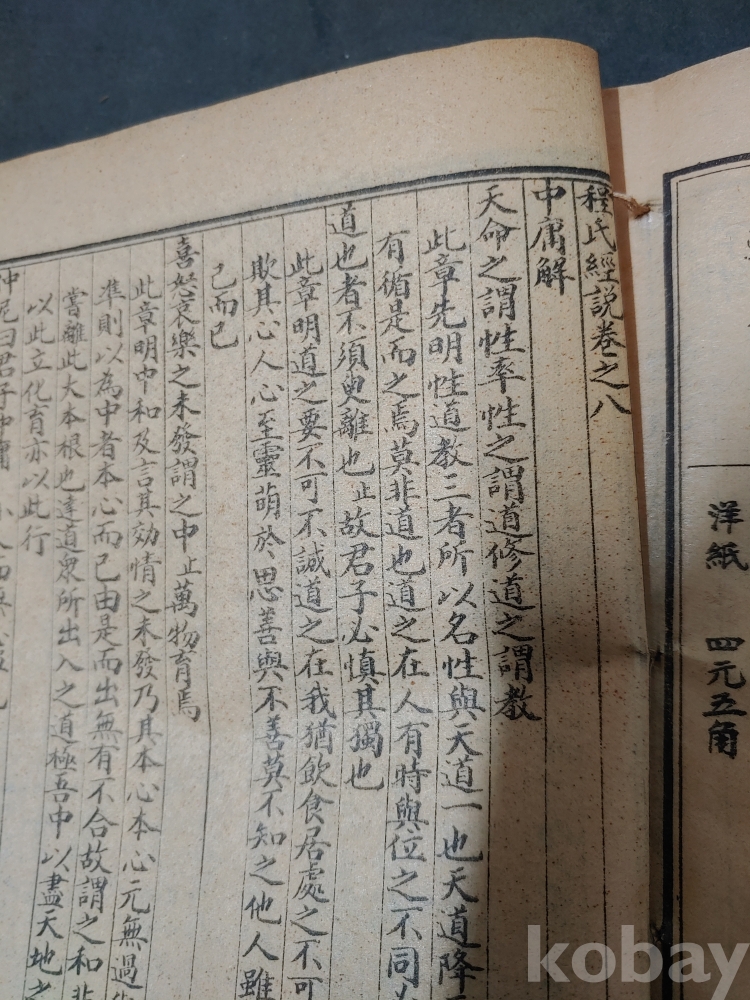 洋紙 四元五角
程氏經說卷之八
中庸解
天命之謂性率性之謂道修道之謂教
此章先明性道教三者所以名性與天道一也天道降
有循是而之焉莫非道也道之在人有時與位之不同
道也者不須臾離也止故君子必慎其獨也
此章明道之要不可不誠道之在我猶飲食居處之不可
欺其心人心至靈萌於思善與不善莫不知之他人雖
己而已
喜怒哀樂之未發謂之中止萬物育焉
此章明中和及言其効情之未發乃其本心本心元無過
準則以為中者本心而已由是而出無有不合故謂之和非
嘗離此大本根也達道衆所出入之道極吾中以盡天地之
以此立化育亦以此行
仲尼曰君子中庸
kobay